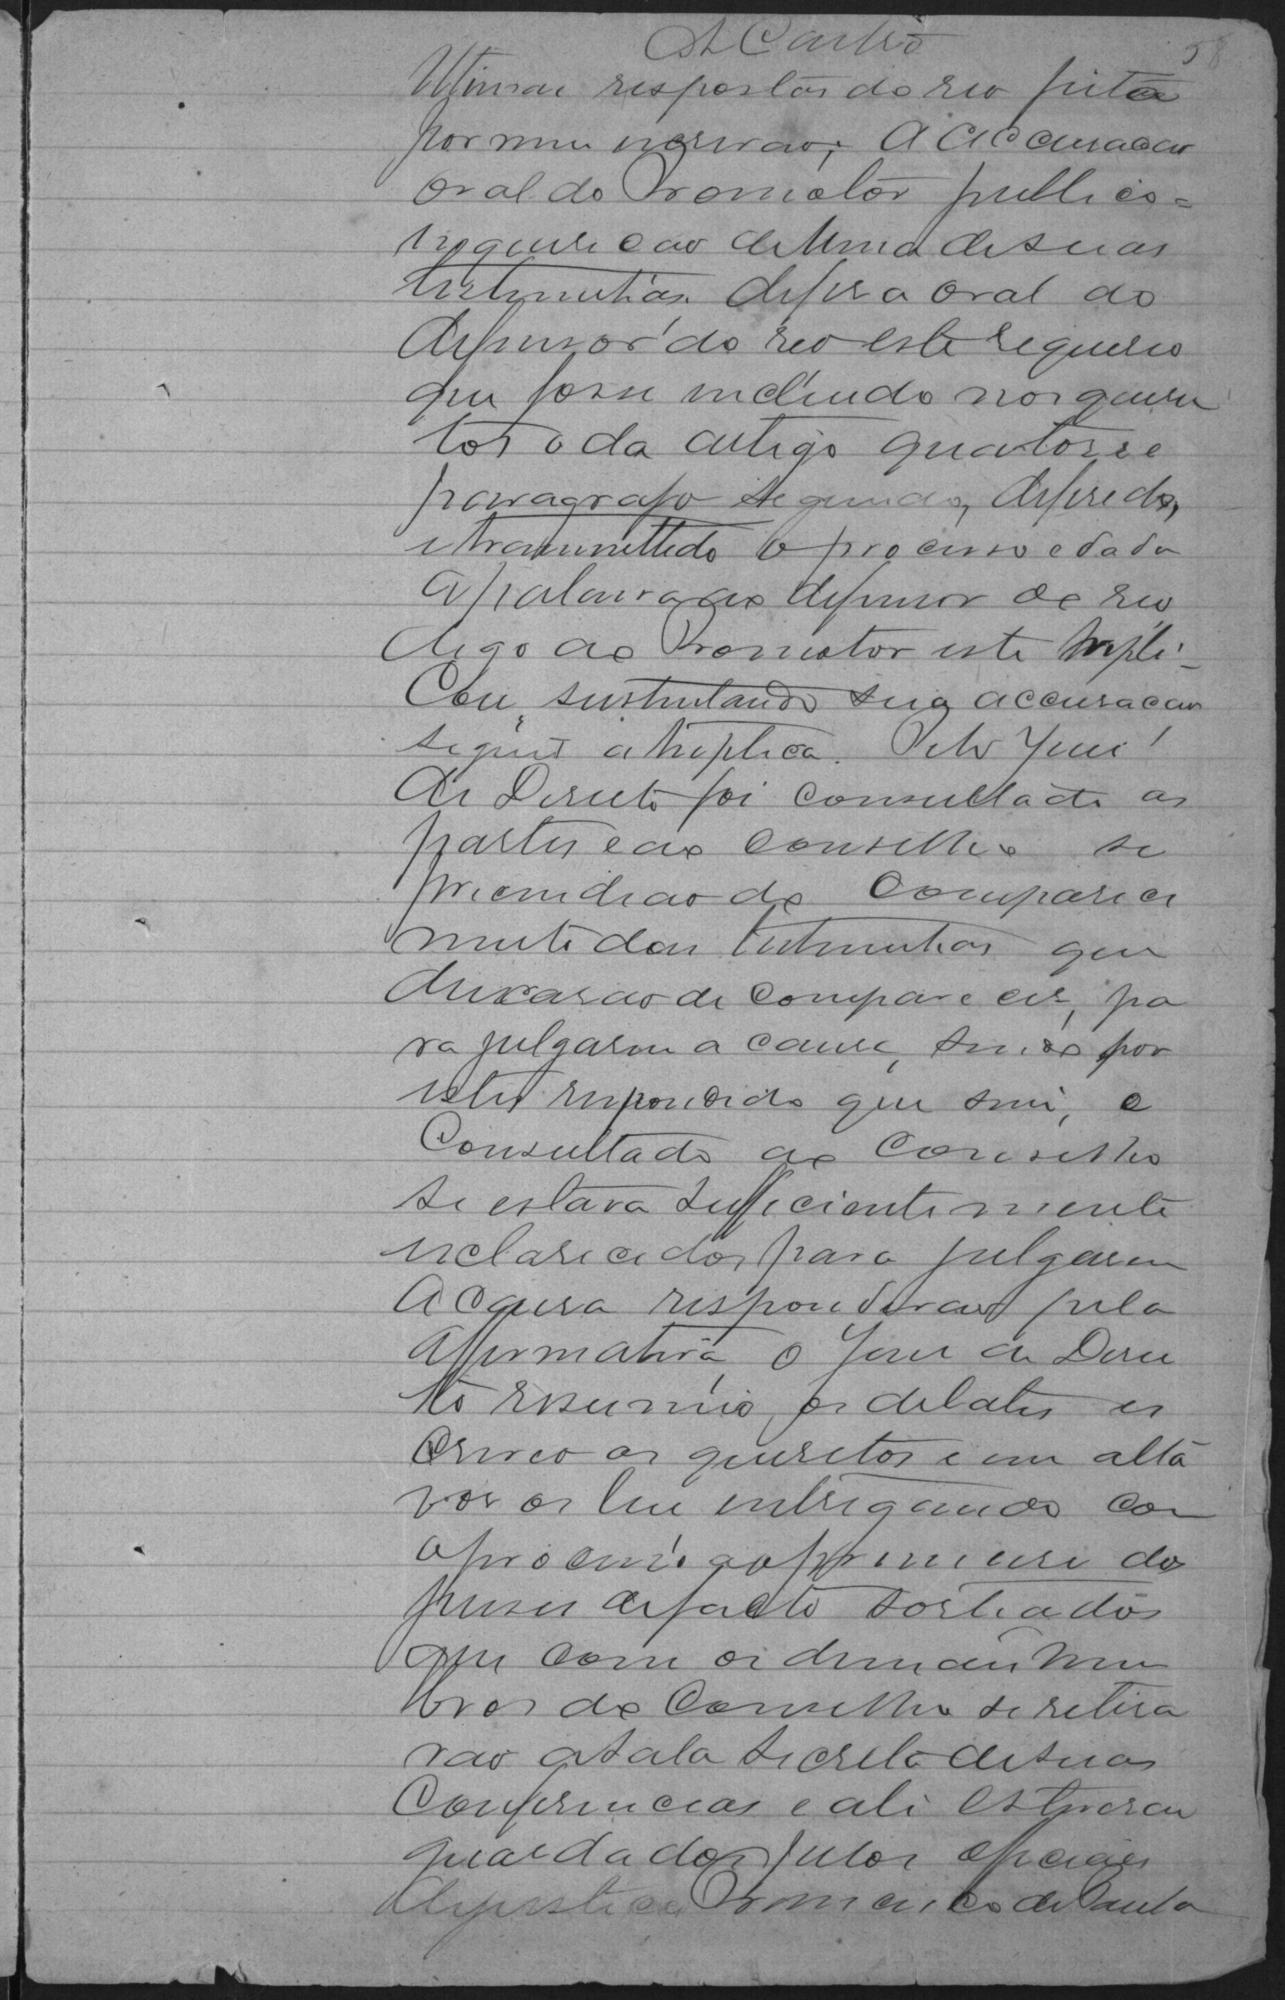 A Castro
58
Ultimas respostas do reo feitas
por mim escrivao; A accusacao
oral do Promotor publico =
inquiricao de uma de suas
testimunhas, defesa oral do
defensor do reo este requereo
que fosse incluido nos quesi
tos o da artigo quatorze
paragrafo segundo, deferido,
e transmettido o processo e dada
a palavra ao defensor do reo
digo ao Promotor este repli-
cou, sustentando sua accusacao
seguio a treplica. Pelo Juis
de Direito foi consultado as
partes e ao conselho se
prescindiao do compareci
mento das testimunhas que
deixarao de comparecer, pa
ra julgarem a causa, sendo por
estes respondido que sim, e
Consultado ao Conselho
se estava sufficientemente
esclarecidos para julgarem
a causa responderao pela
affirmativa, o Juis de Direi
to resumio os debates es
creveo os quesitos e em alta
vos os leu entregando com
o processo ao primeiro dos
juises de facto sorteados
que com os demais mem
bros do Conselho se retira
rao a sala secreta de suas
Conferencias e ali estiverao
guardados pelos officiaes
de justica Francisco de Paula